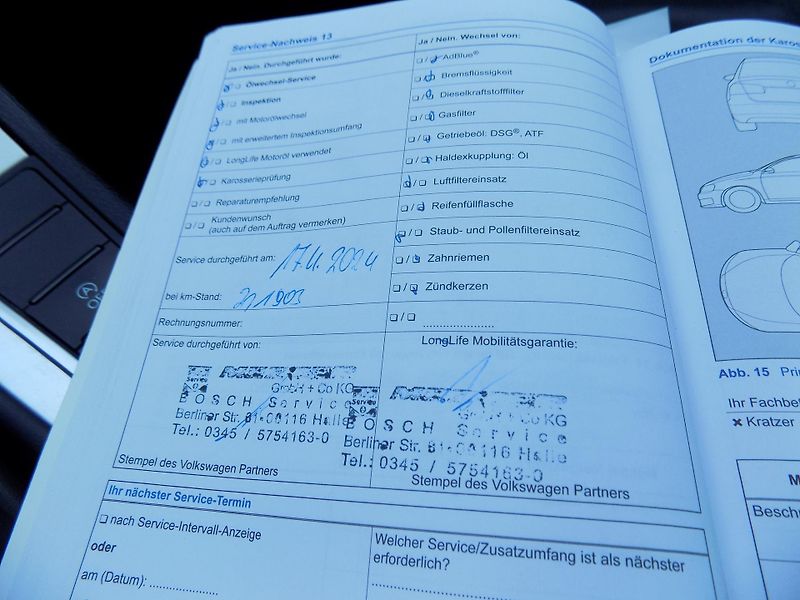 Service-Nachweis 13
Ja / Nein. Durchgeführt wurde:
Ölwechsel-Service
Inspektion
mit Motorölwechsel
mit erweitertem Inspektionsumfang
LongLife Motoröl verwendet
Karosserieprüfung
Reparaturempfehlung
Kundenwunsch
(auch auf dem Auftrag vermerken)
Service durchgeführt am:
bei km-Stand:
Rechnungsnummer:
Service durchgeführt von:
GmbH + Co KG
BOSCH Service
Berliner Str. 06116 Halle
Tel.: 0345 / 5754163-0
Stempel des Volkswagen Partners
Ja / Nein. Wechsel von:
AdBlue®
Bremsflüssigkeit
Dieselkraftstofffilter
Gasfilter
Getriebeöl: DSG®, ATF
Haldexkupplung: Öl
Luftfiltereinsatz
Reifenfüllflasche
Staub- und Pollenfiltereinsatz
Zahnriemen
Zündkerzen
LongLife Mobilitätsgarantie:
Service
GmbH + Co KG
BOSCH
Service
Berliner Str. Halle
Tel.: 0345 / 5754163-0
Stempel des Volkswagen Partners
Ihr nächster Service-Termin
nach Service-Intervall-Anzeige
oder
am (Datum):
Welcher Service/Zusatzumfang ist als nächster
erforderlich?
Dokumentation der Karos
Abb. 15
Ihr Fachbe
Kratzer
M
Besch